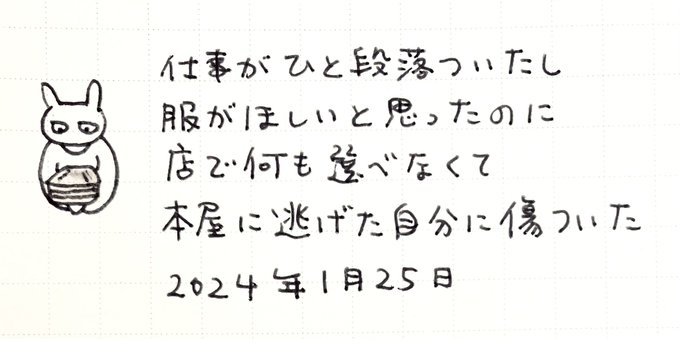 仕事がひと段落ついたし
服がほしいと思ったのに
店で何も選べなくて
本屋に逃げた自分に傷ついた
2024年1月25日